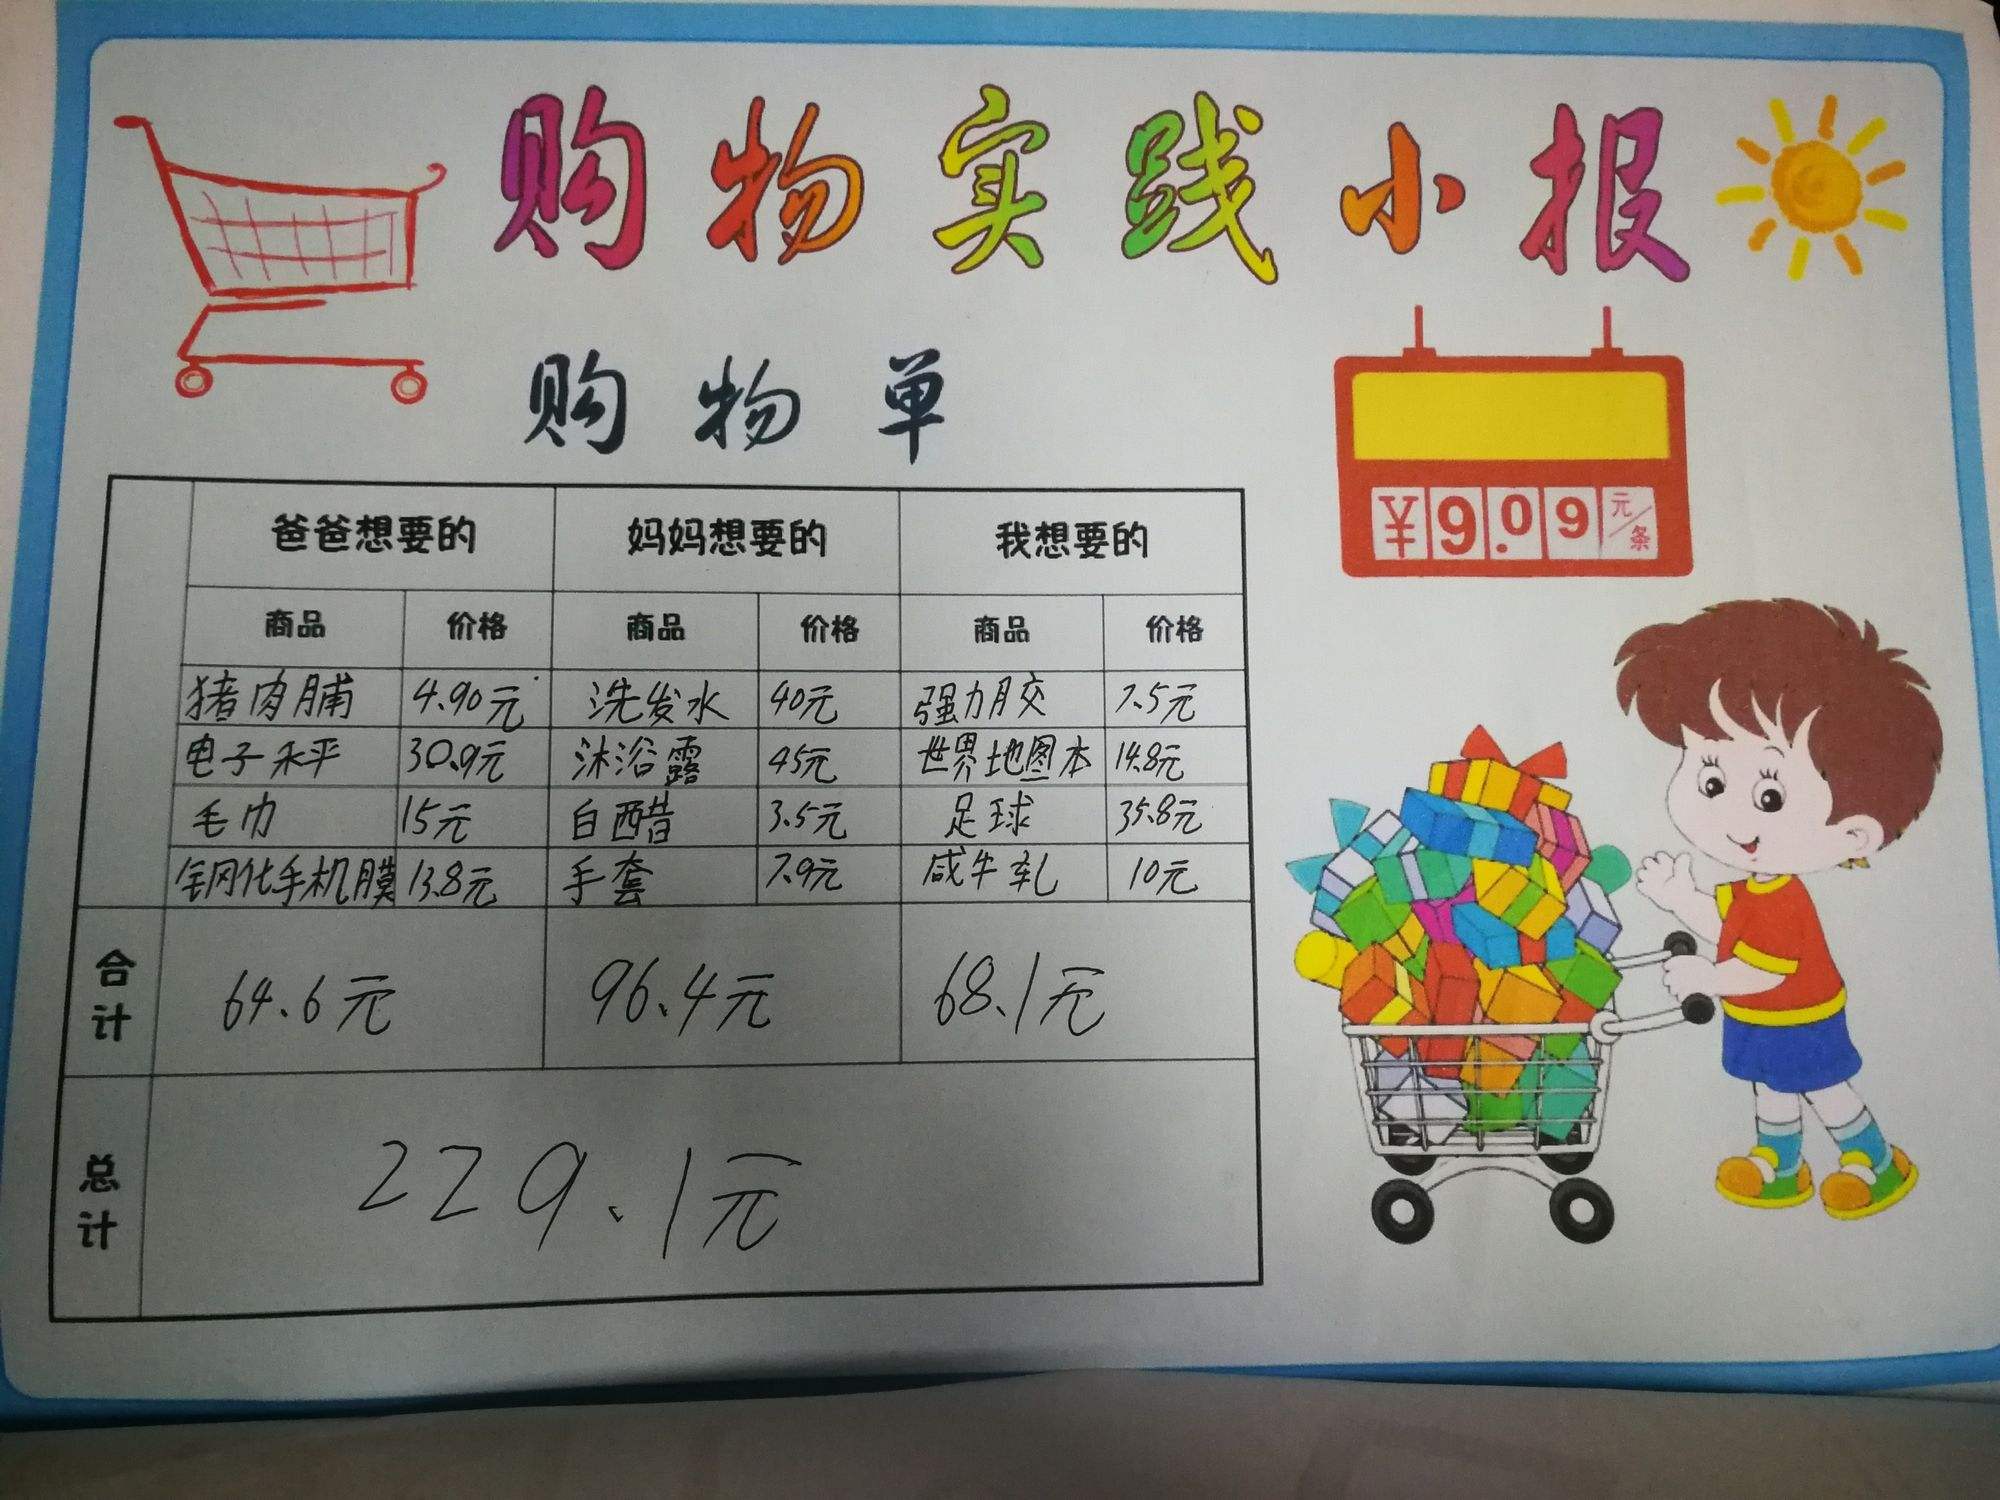 购物实践小报
购物单
¥9.09元/条
爸爸想要的 妈妈想要的 我想要的
商品 价格 商品 价格 商品 价格
猪肉脯 4.90元 洗发水 40元 强力胶 7.5元
电子禾平 30.9元 沐浴露 45元 世界地图本 14.8元
毛巾 15元 白醋 3.5元 足球 35.8元
钢化手机膜 13.8元 手套 7.9元 咸牛轧 10元
合计 64.6元 96.4元 68.1元
总计 229.1元